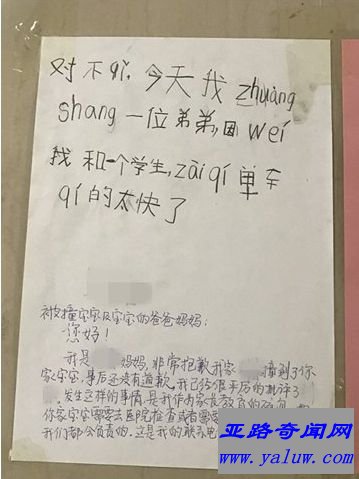 对不qǐ,今天我 zhuàng
shang 一位弟弟,因 wéi
我和一个学生,zài qí 单车
qí 的太快了
被撞宝宝及宝宝的爸爸妈妈:
您好!
我是 妈妈,非常抱歉我家 撞到了你
家宝宝,事后还没有道歉。我已经很严厉的批评了
。发生这样的事情,是我作为家长教育的
你家宝宝需要去医院检查或者需要
我们都会负责的。这是我的联系电
亚路奇闻网
www.yaluw.com